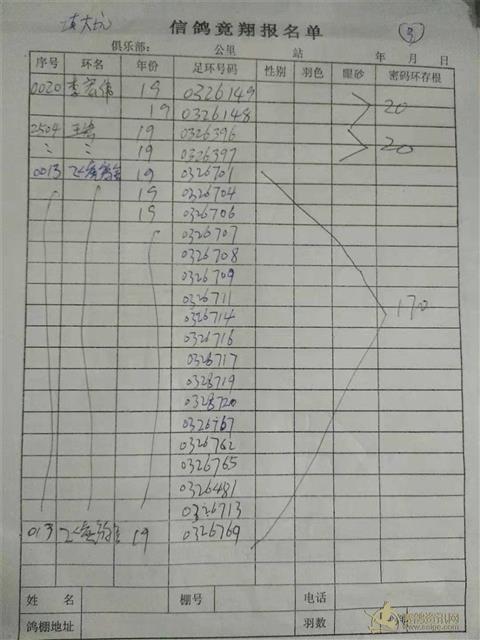 信鸽竞翔报名单
3
俱乐部: 公里 站 年 月 日
序号 环名 年份 足环号码 性别 羽色 眼砂 密码环存根
0020 李宏伟 19 0326149
19 0326148 20
2504 19 0326396
19 0326397 20
0013 19 0326701
19 0326704
19 0326706
0326707
0326708
0326709
0326711
0326714 170
0326716
0326717
0328719
0328720
0326767
0326762
0326765
0326481
0326713
013 19 0326769
姓名 棚号 电话
鸽棚地址 羽数